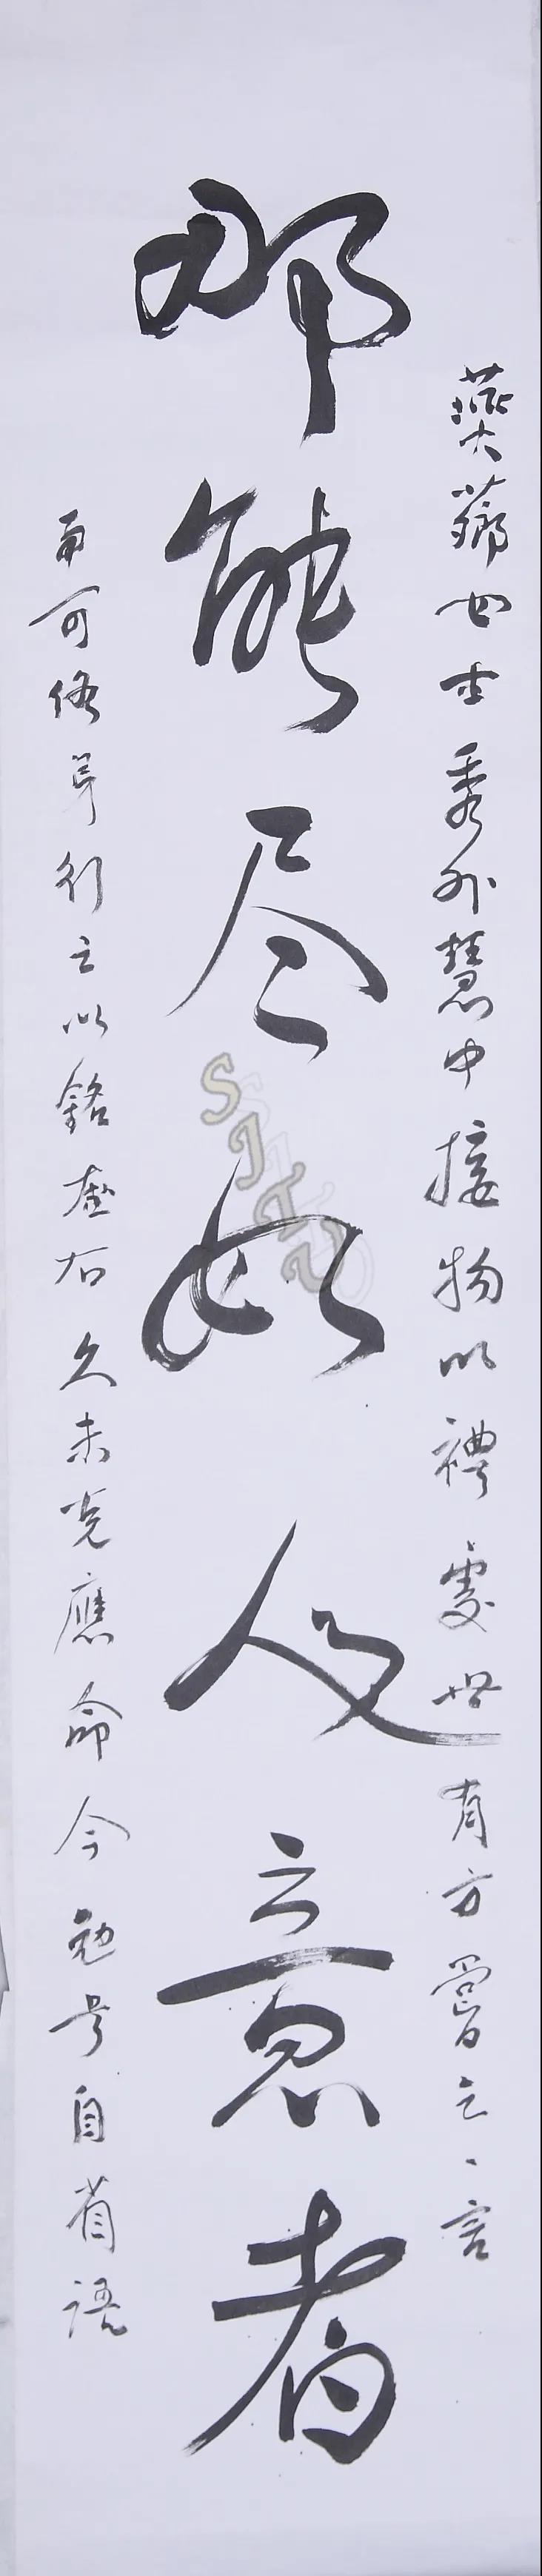 燕薌女士秀外慧中接物以禮處世有方嘗乞一言
那能尽如人意者
而可修身行之以銘座右久未克應命今勉書自省語